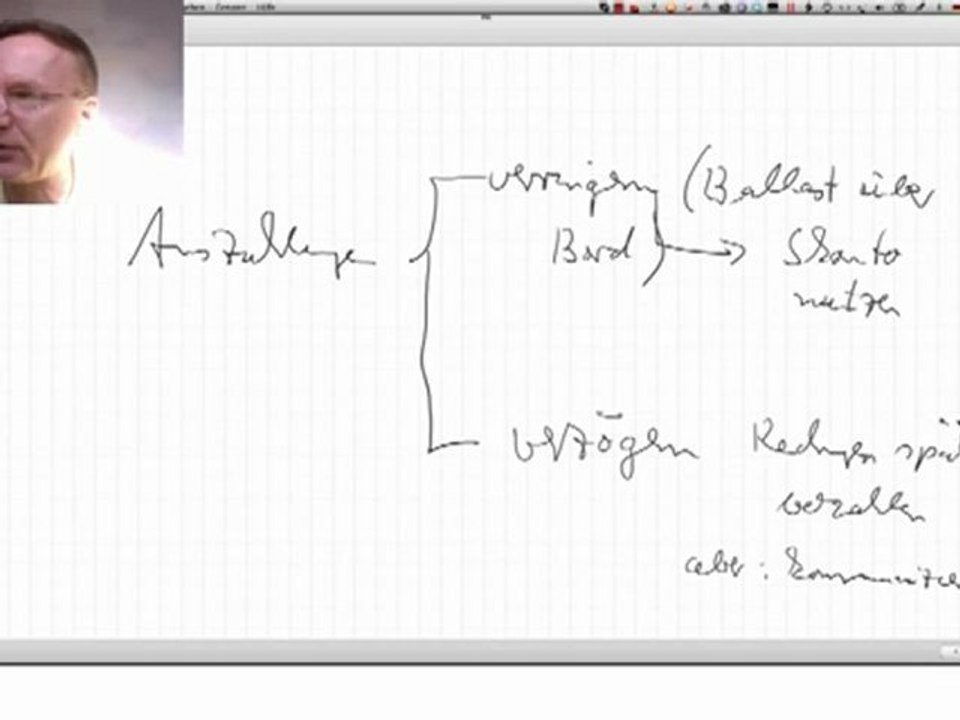 verringern (Ballast über
Auszahlungen Bord) → Skonto
nutzen
verzögern Rechnungen spä
bezahlen
aber: